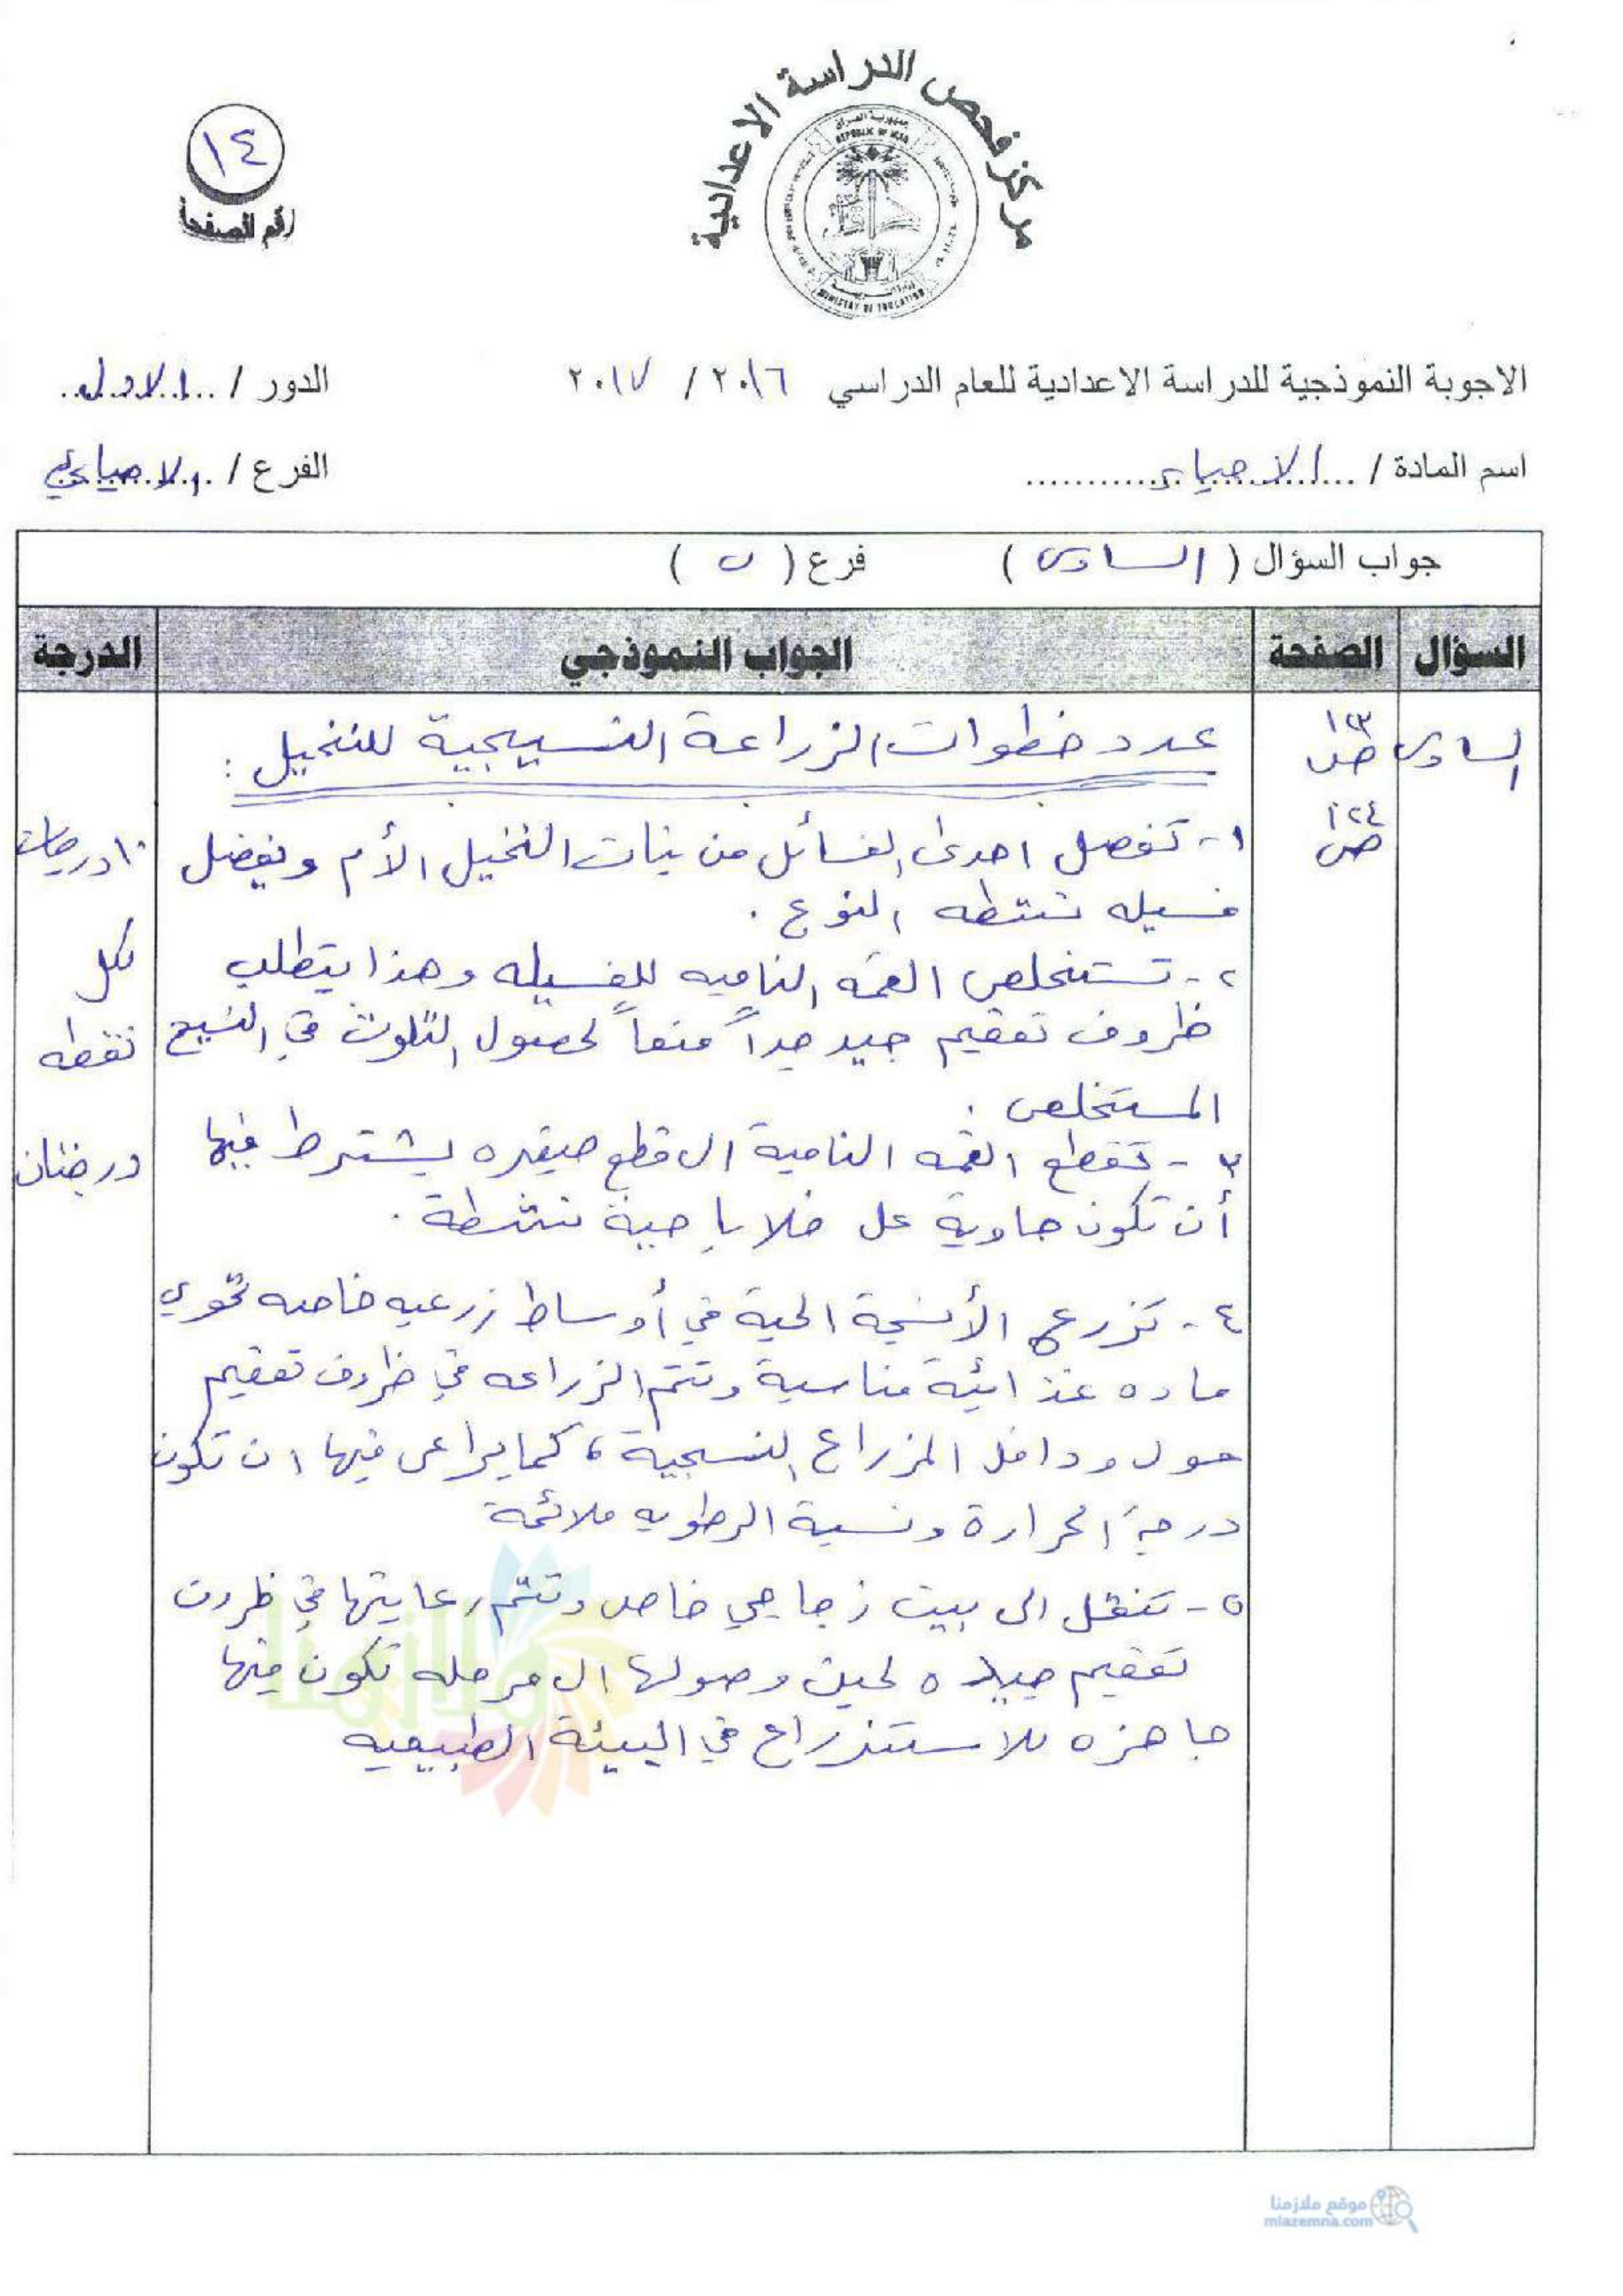 مركز فحص الدراسة الاعدادية
جمهورية العراق
REPUBLIC OF IRAQ
وزارة التربية
MINISTRY OF EDUCATION
١٤
رقم الصفحة
الاجوبة النموذجية للدراسة الاعدادية للعام الدراسي ٢٠١٦ / ٢٠١٧
الدور / الاول
اسم المادة / الاحياء
الفرع / الاحيائي
جواب السؤال ( السادس ) فرع ( ب )
السؤال الصفحة الجواب النموذجي الدرجة
السادس
ص ١٢٣
ص ١٢٤
عدد خطوات الزراعة النسيجية للنخيل :
١- تفصل احدى الفسائل من نبات النخيل الأم ويفضل
فسيله نشطه النوع .
٢- تستخلص القمه الناميه للفسيله وهذا يتطلب
ظروف تعقيم جيد جداً منعاً لحصول التلوث في النسيج
المستخلص .
٣- تقطع القمه النامية الى قطع صغيره يشترط فيها
أن تكون حاوية على خلايا حية نشطة .
٤- تزرع الأنسجة الحية في أوساط زرعيه خاصه تحوي
ماده غذائية مناسبة وتتم الزراعه في ظروف تعقيم
حول وداخل المزراع النسجية ، كما يراعى فيها ان تكون
درجة الحرارة ونسبة الرطوبه ملائمة
٥- تنقل الى بيت زجاجي خاص وتتم رعايتها في ظروف
تعقيم جيده لحين وصولها الى مرحله تكون فيها
جاهزه للاستزراع في البيئة الطبيعيه
١٠ درجات
لكل
نقطه
درجتان
ملازمنا
موقع ملازمنا
mlazemna.com